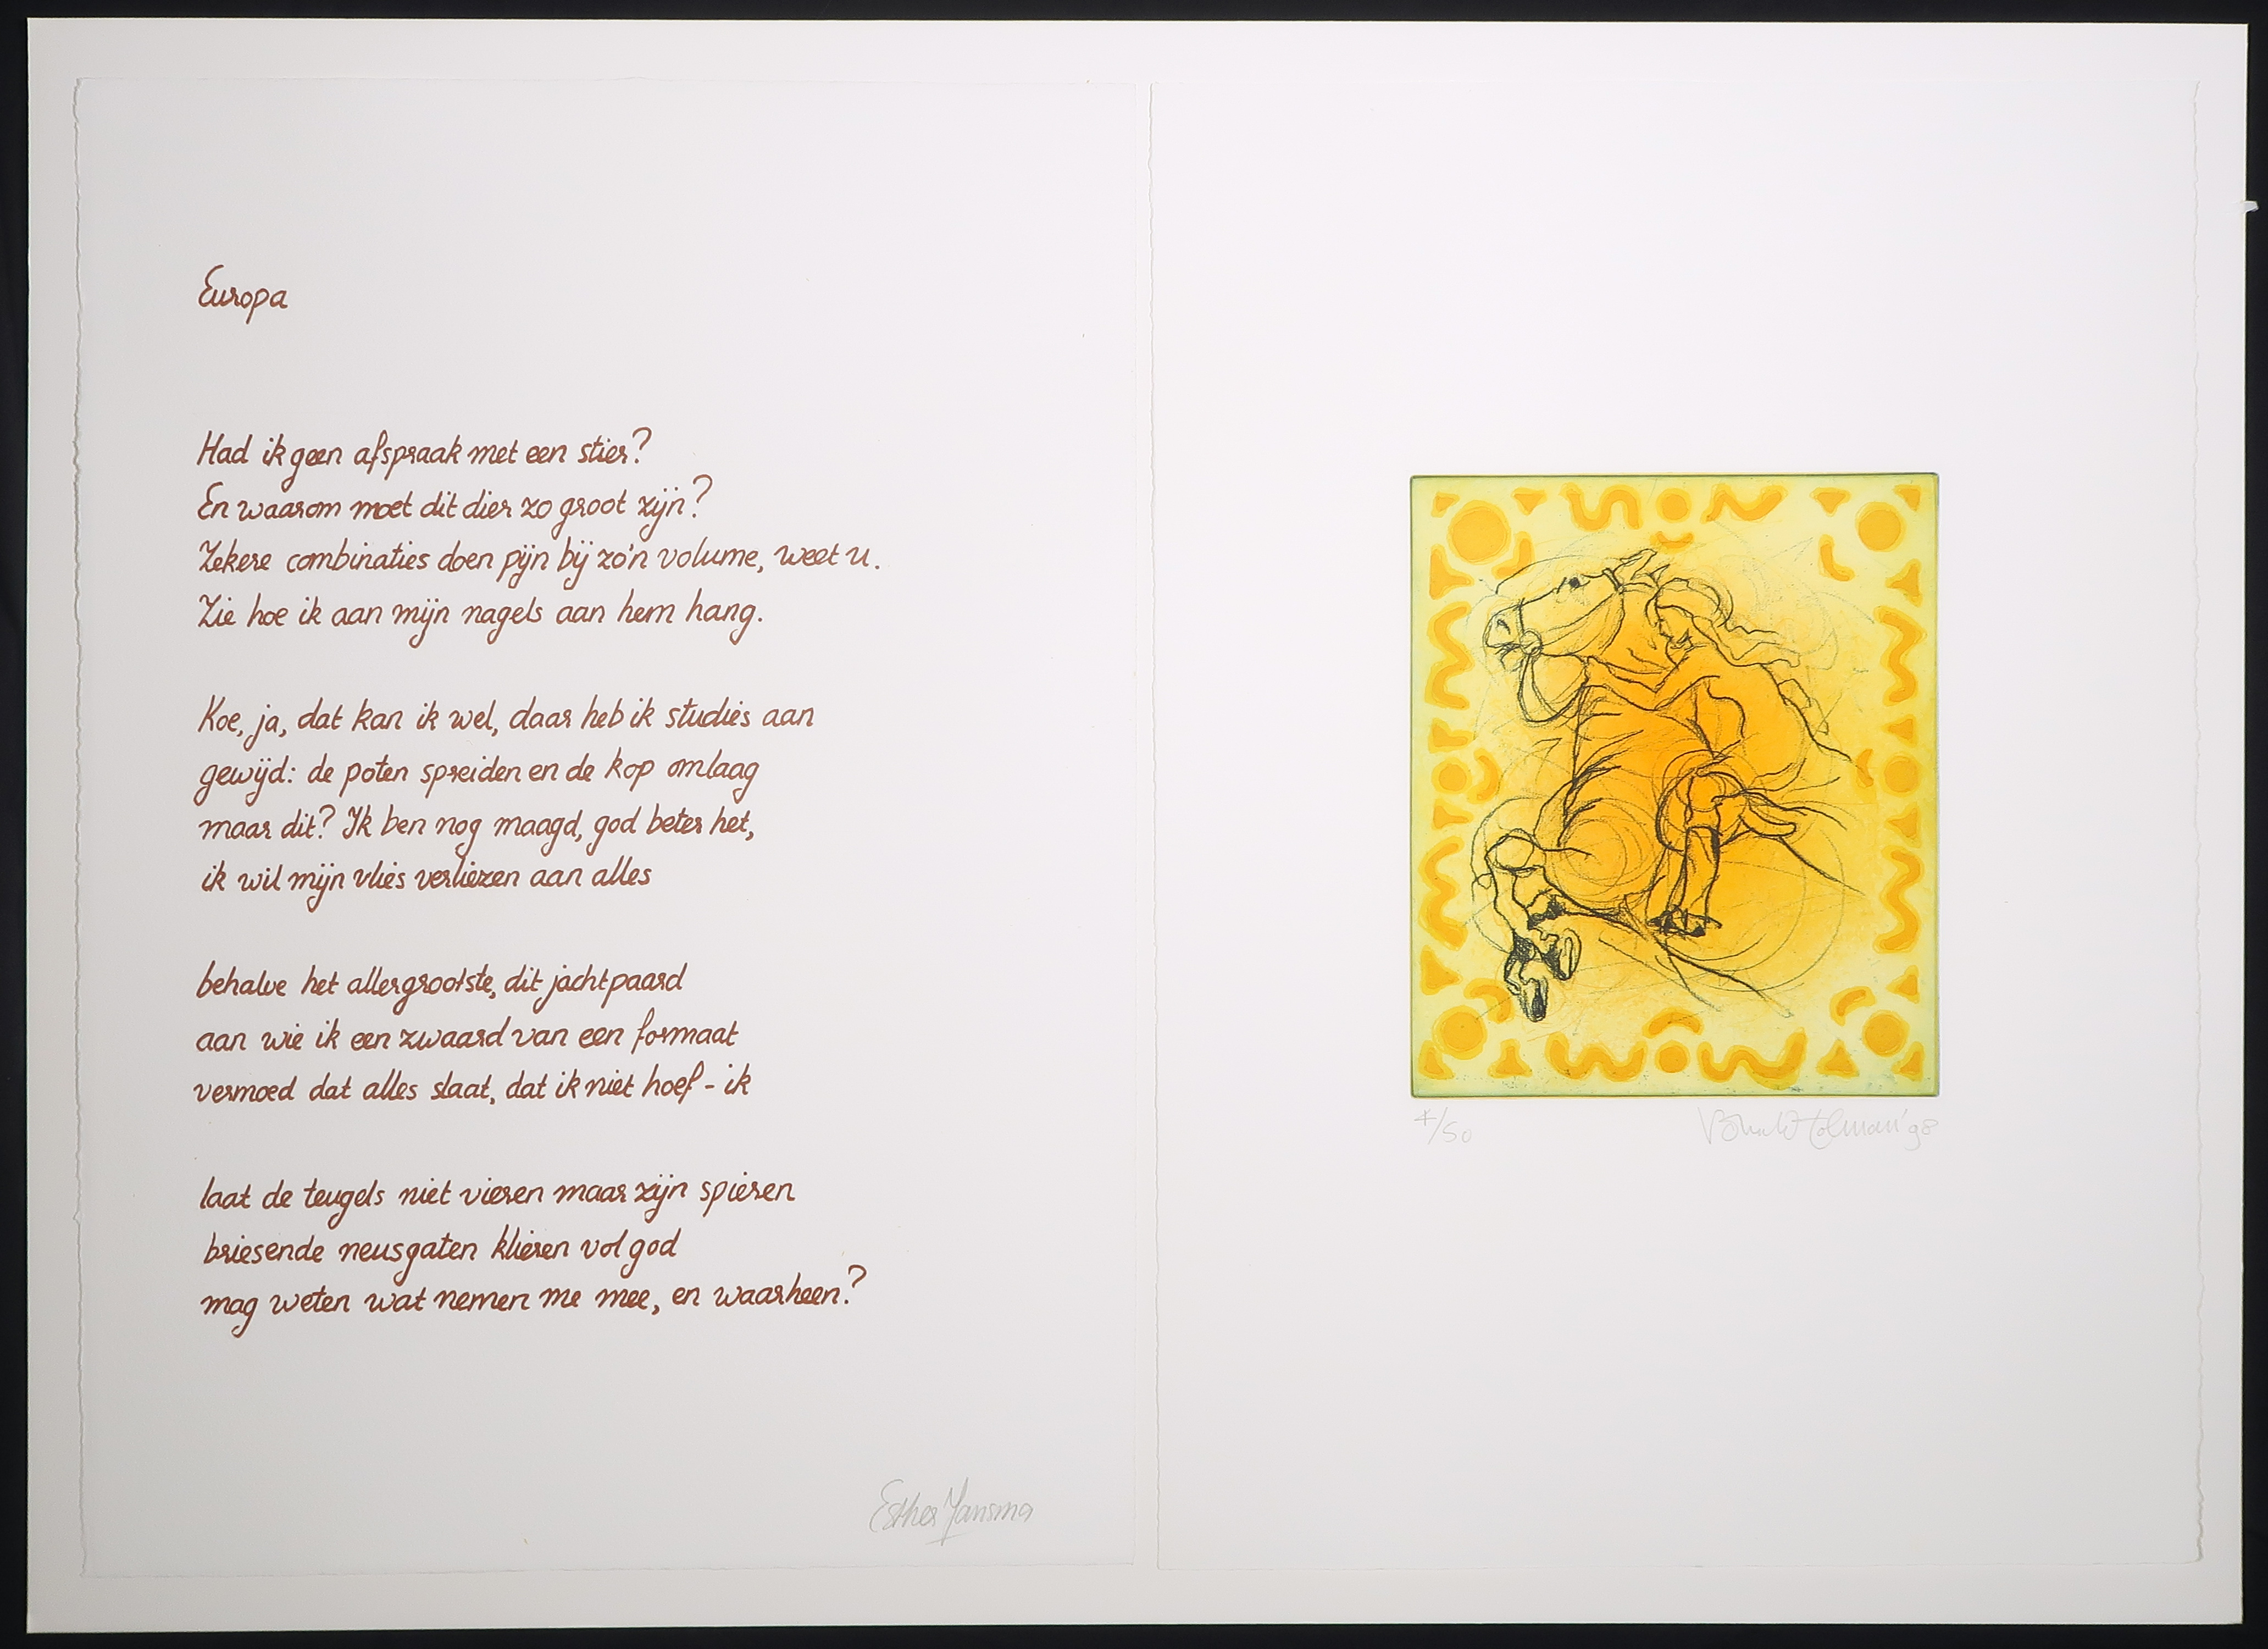 Europa
Had ik geen afspraak met een stier?
En waarom moet dit dier zo groot zijn?
Zekere combinaties doen pijn bij zo'n volume, weet u.
Zie hoe ik aan mijn nagels aan hem hang.
Koe, ja, dat kan ik wel, daar heb ik studies aan
gewijd: de poten spreiden en de kop omlaag
maar dit? Ik ben nog maagd, god beter het,
ik wil mijn vlies verliezen aan alles
behalve het allergrootste, dit jachtpaard
aan wie ik een zwaard van een formaat
vermoed dat alles slaat, dat ik niet hoef - ik
laat de teugels niet vieren maar zijn spieren
briesende neusgaten klieren vol god
mag weten wat nemen me mee, en waarheen?
Esther Jansma
/50
Tolman '98